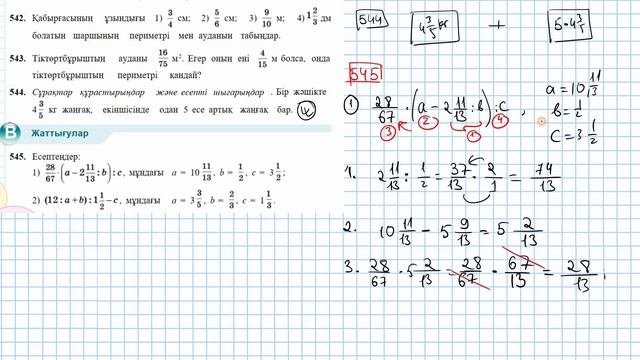 542. Қабырғасының ұзындығы 1) 3/4 см; 2) 5/6 см; 3) 9/10 м; 4) 1 2/3 дм
болатын шаршының периметрі мен ауданын табыңдар.
543. Тіктөртбұрыштың ауданы 16/75 м². Егер оның ені 4/15 м болса, онда
тіктөртбұрыштың периметрі қандай?
544. Сұрақтар құрастырыңдар және есепті шығарыңдар. Бір жәшікте
4 3/5 кг жаңғақ, екіншісінде одан 5 есе артық жаңғақ бар.
B Жаттығулар
545. Есептеңдер:
1) 28/67 · (a − 2 11/13 : b) : c, мұндағы a = 10 11/13, b = 1/2, c = 3 1/2;
2) (12 : a + b) : 1 1/2 − c, мұндағы a = 3 3/5, b = 2/3, c = 1 1/3.
544 4 3/5 кг + 5·4 3/5
545
① 28/67 · (a − 2 11/13 : b) : c ,
③ ② ① ④
a = 10 11/13
b = 1/2
c = 3 1/2
1. 2 11/13 : 1/2 = 37/13 · 2/1 = 74/13
2. 10 11/13 − 5 9/13 = 5 2/13
3. 28/67 · 5 2/13 = 28/67 · 67/13 = 28/13